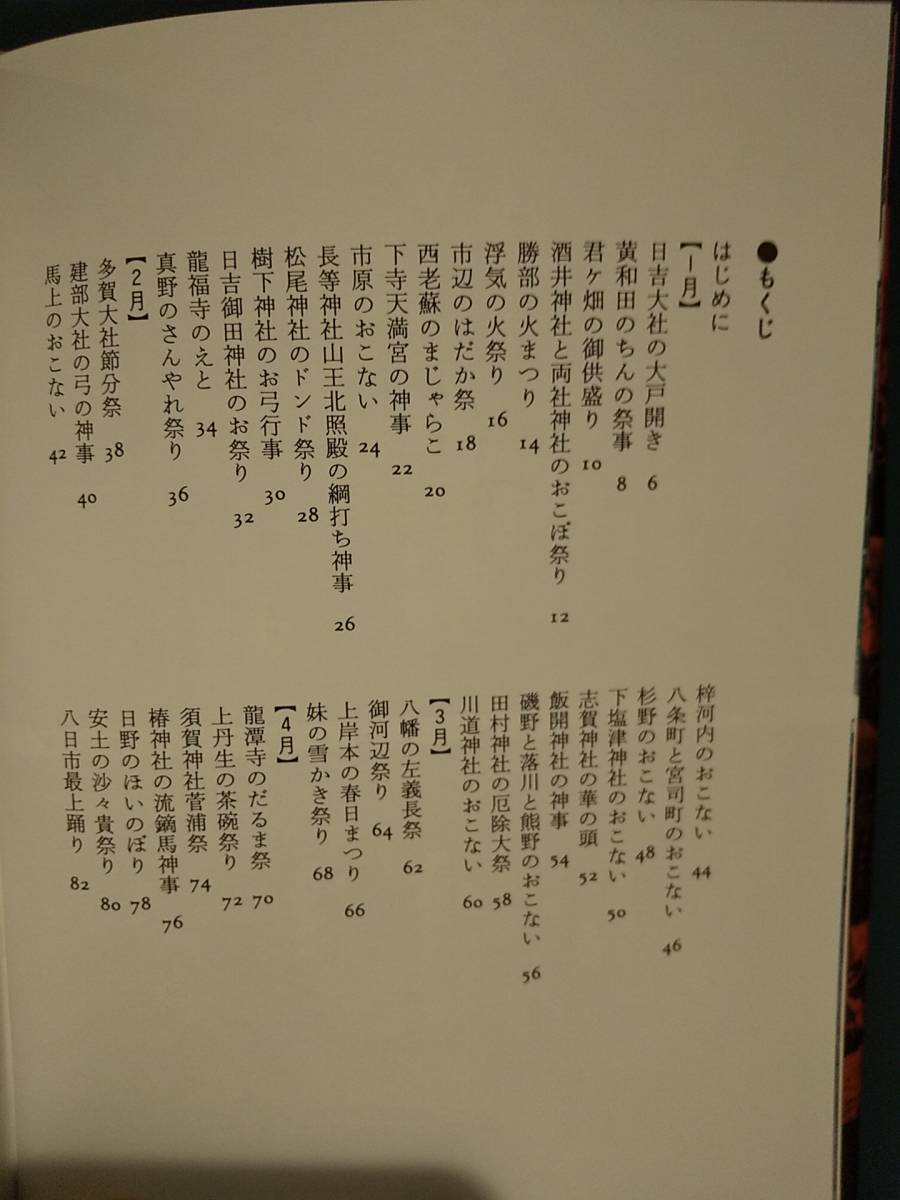 ●もくじ
はじめに
【1月】
日吉大社の大戸開き 6
黄和田のちんの祭事 8
君ヶ畑の御供盛り 10
酒井神社と両社神社のおこぼ祭り 12
勝部の火まつり 14
浮気の火祭り 16
市辺のはだか祭 18
西老蘇のまじゃらこ 20
下寺天満宮の神事 22
市原のおこない 24
長等神社山王北照殿の綱打ち神事 26
松尾神社のドンド祭り 28
樹下神社のお弓行事 30
日吉御田神社のお祭り 32
龍福寺のえと 34
真野のさんやれ祭り 36
【2月】
多賀大社節分祭 38
建部大社の弓の神事 40
馬上のおこない 42
梓河内のおこない 44
八条町と宮司町のおこない 46
杉野のおこない 48
下塩津神社のおこない 50
志賀神社の華の頭 52
飯開神社の神事 54
磯野と落川と熊野のおこない 56
田村神社の厄除大祭 58
川道神社のおこない 60
【3月】
八幡の左義長祭 62
御河辺祭り 64
上岸本の春日まつり 66
妹の雪かき祭り 68
【4月】
龍潭寺のだるま祭 70
上丹生の茶碗祭り 72
須賀神社菅浦祭 74
椿神社の流鏑馬神事 76
日野のほいのぼり 78
安土の沙々貴祭り 80
八日市最上踊り 82